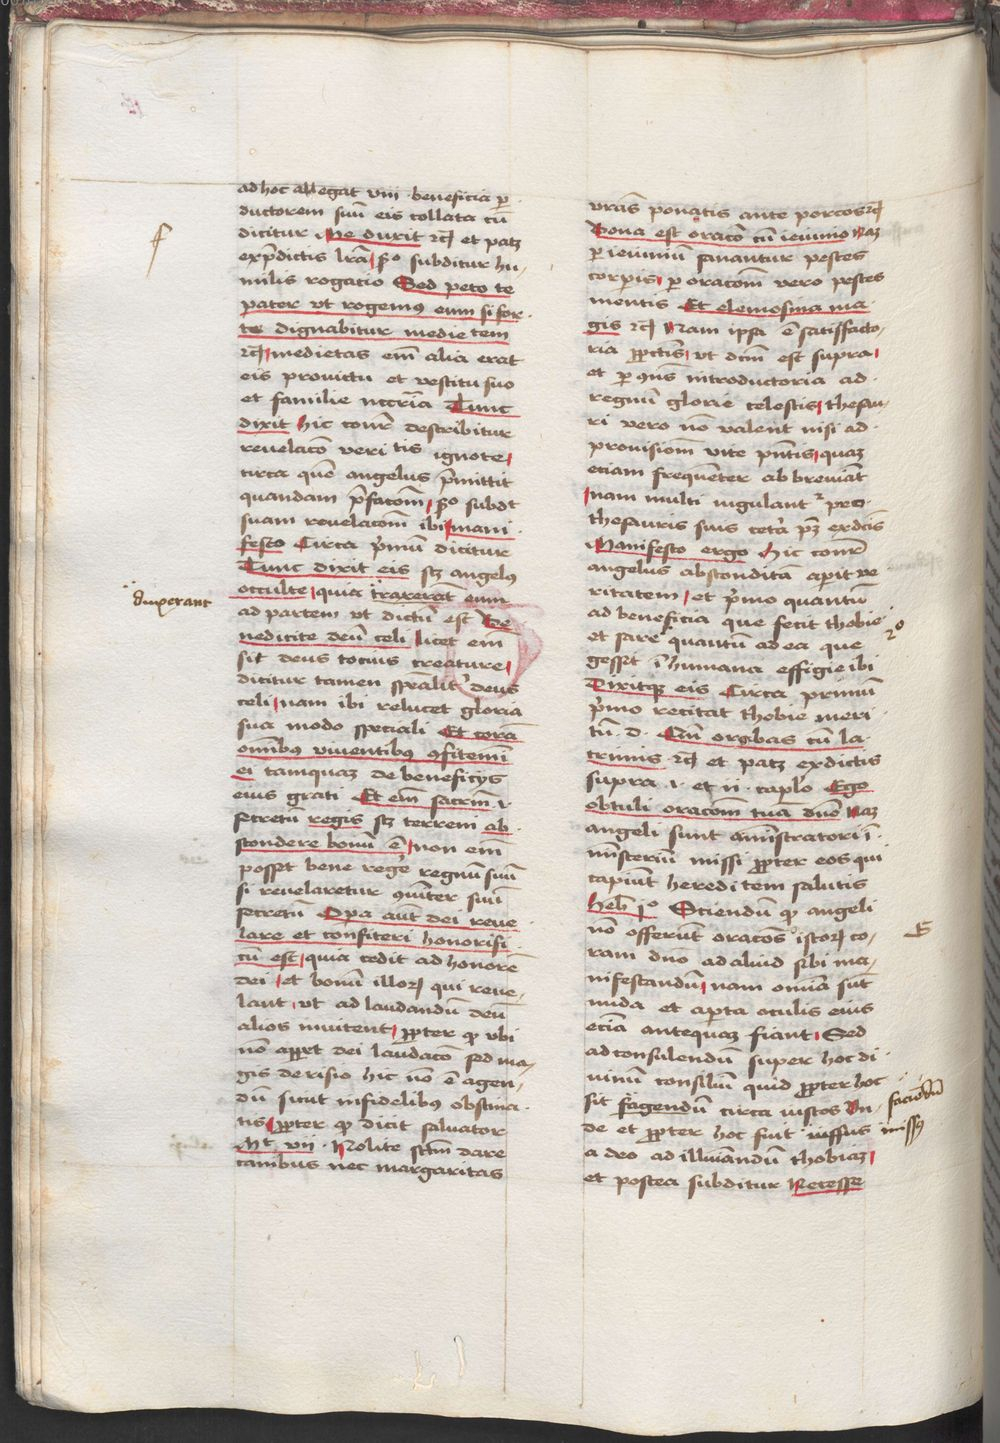 f
ad hoc allegat viii beneficia per
ductorem suū eis collata cū
dicitur Me duxit rc̄ et patz
exp̄dictis lr̄a / sº subditur hu-
milis rogatio Sed peto te
pater vt rogemꝯ eum si for-
te dignabitur medietatem
rc̄ / medietas em̄ alia erat
eis pro victu et vestitu suo
et familie nccr̄ia Tunc
dixit hic conr̄ describitur
reuelacō veritatis ignote /
circa quē angelus p̄mittit
quandam p̄facōm / sº subdt
suam reuelacōm ibi / mani
festo Circa p̄mū dicitur
Tunc dixit eis sz angelꝯ
occulte / quia traxerāt eum
duxerant
ad partem vt dictū est Be
nedicite deū celi / licet em̄
sit deus tocius creature /
dicitur tamen spēalit' deus
celi / nam ibi relucet gloria
sua modo speciali Et corā
omībꝯ viuentibꝯ ꝯfitemī
ei tamquaz de beneficijs
eius grati Et em̄ sacrm̄ .i.
secretū regis sz terreni ab
scondere bonū ē / non em̄
posset bene rege' regnū suū
si reuelaretur ꝯīter suū
secretū Opa aūt dei reue
lare et confiteri honorifi
cū est / quia cedit ad honorē
dei / et bonū illorꝝ qui reue-
lant / vt ad laudandū deū
alios inuitent / ꝓpter qꝫ vbi
nō appꝛt dei laudacō sed ma-
gis derisio hic nō ē agen-
dū sicut infidelibꝯ obstina
tis / ꝓpter qꝫ dicit saluator
Mt vii Nolite scm̄ dare
canibus nec margaritas
vr̄as ponatis ante porcos rc̄
Bona est oracō cū ieiunio Naz
per ieiuniū sanantur pestes
corpis / per oracōm vero pestes
mentis Et elemosina ma-
gis rc̄ Nam ipsa ē satisfacto-
ria pctīs / vt dcm̄ est supra /
et per ꝯns introductoria ad
regnū glorie celestis / thesau-
ri vero nō valent nisi ad
prouisiōm vite pn̄tis / quaz
eciam frequēter abbreuiāt
/ nam multi iugulant' pro
thesauris suis cetā pz exdc̄is
Manifesto ergo Hic conr̄
angelus absconditā apit ve
ritatem / et p̄mo quantū
ad beneficia que fecit thobie
2º
et sare quantū ad ea que
gessit ī humana effigie ibi
Dixitqꝫ eis Circa primū
p̄mo recitat thobie meri
tū .d. Qn̄ orabas cū la-
crimis rc̄ et patz exdictis
supra .i. et ii caplo Ego
obtuli oracōm tuā dn̄o Naz
angeli sunt amīstratorii ī
mīsteriū missi ꝓpter eos qui
capiūt hereditem salutis
Heb̄ jº Sciendū qꝫ angeli
nō offerūt oracōes istorꝝ co-
ram dn̄o ad aliud sibi ma-
nifestandū / nam omīa sūt
nuda et apta oculis eius
eciā antequaz fiant / Sed
ad consulendū super hoc di
uinū consiliū quid ꝓpter hoc
sit fagendū circa iustos Vn-
faciēdū
de et ꝓpter hoc fuit iussus
missꝯ
a deo ad illuīandū thobiaz /
et postea subditur Necesse